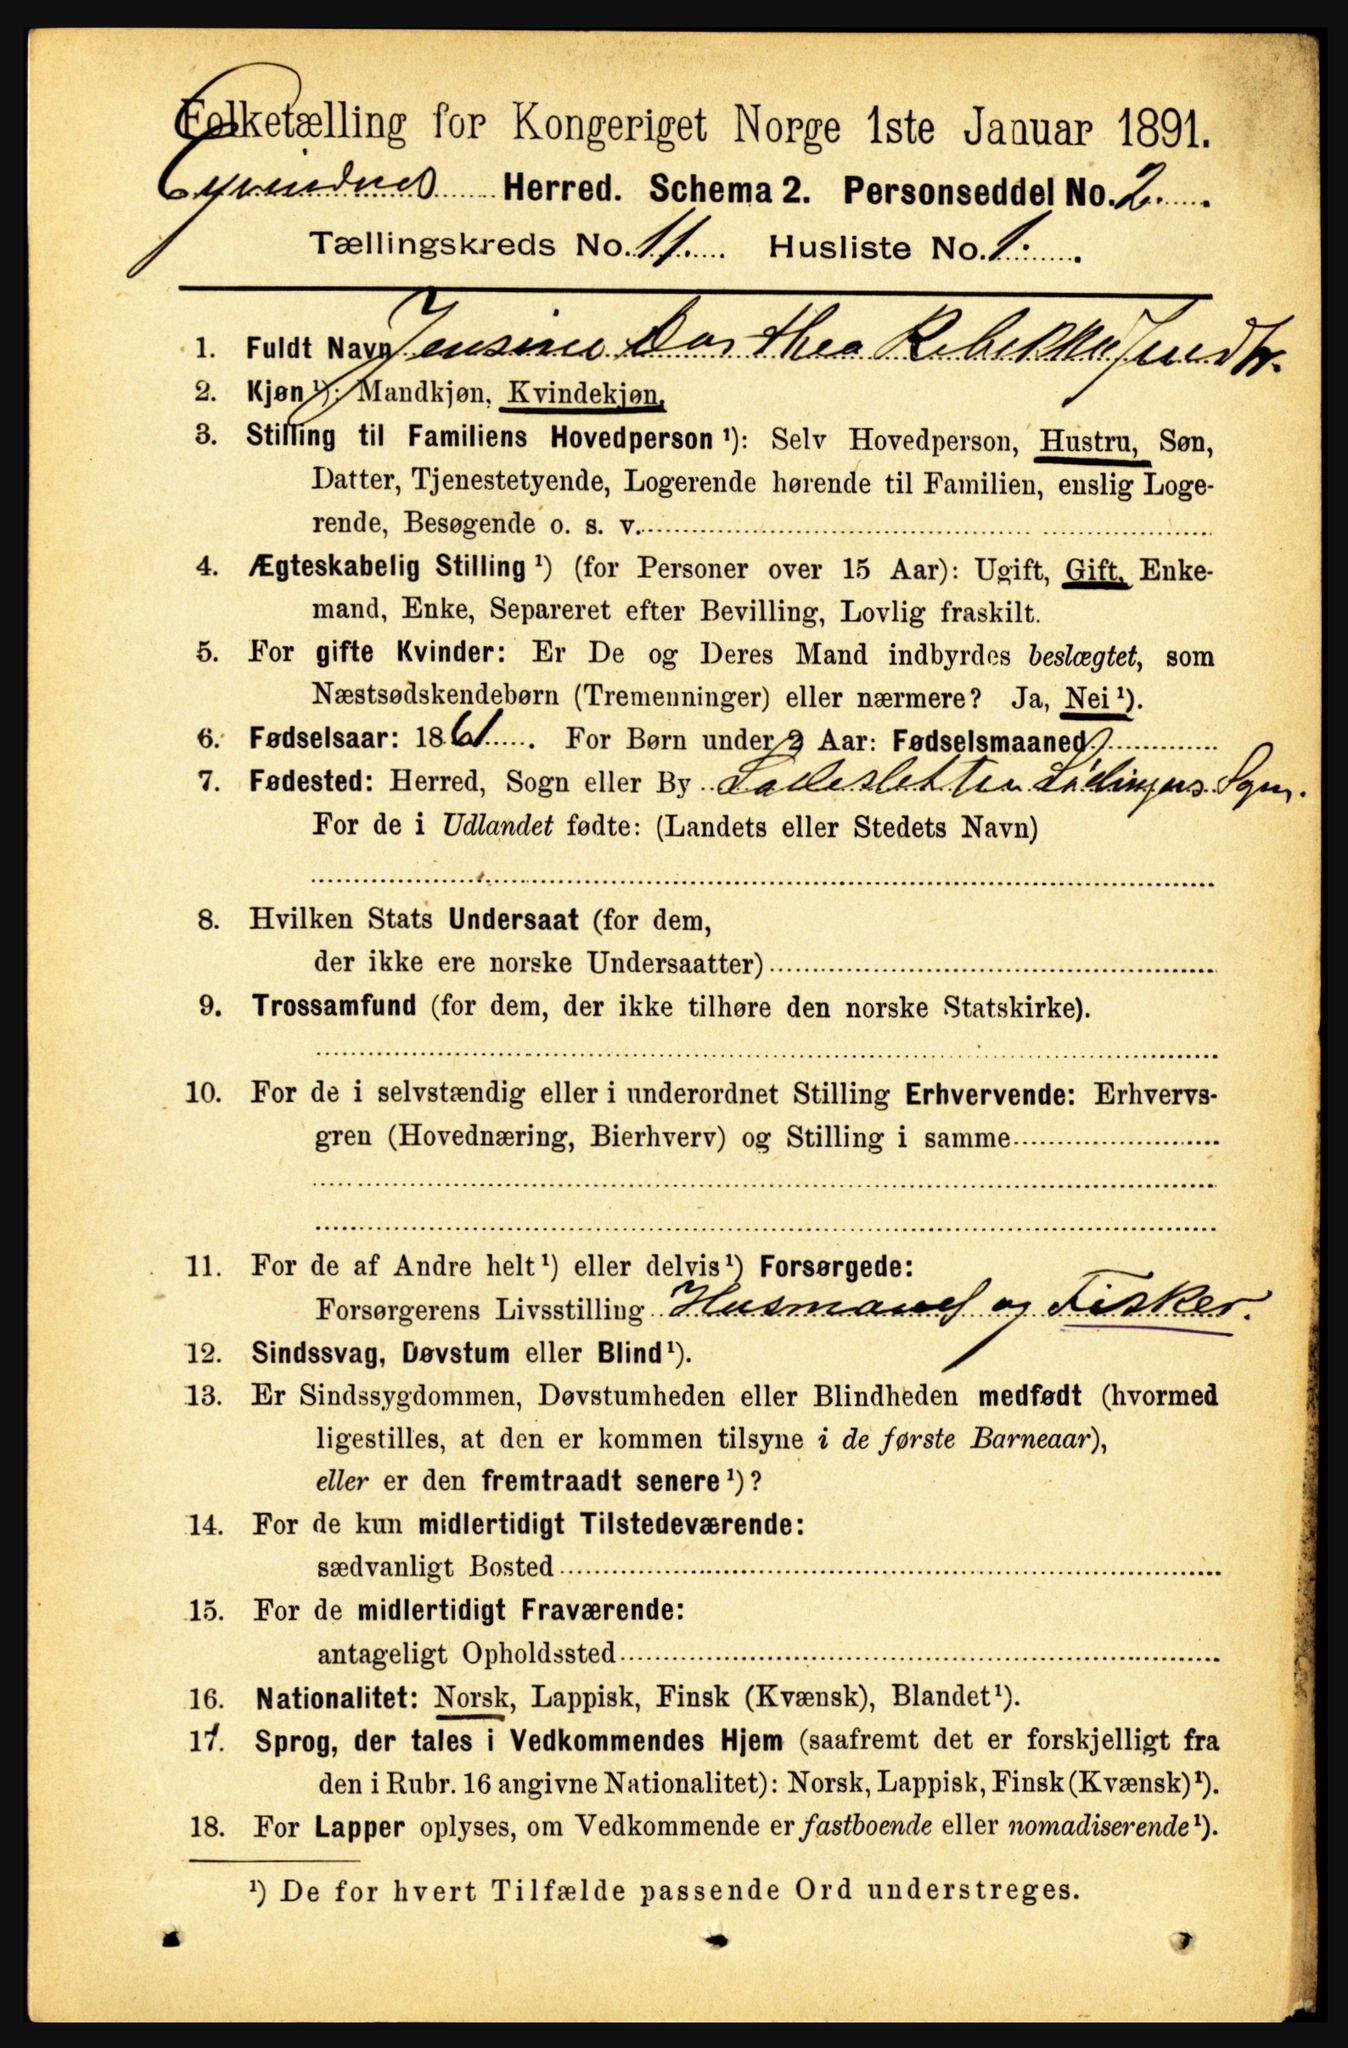 Folketælling for Kongeriget Norge 1ste Januar 1891.
Evindnes Herred. Schema 2. Personseddel No. 2.
Tællingskreds No. 11. Husliste No. 1.
1. Fuldt Navn Jensine Dorthea Rebekka
2. Kjøn ¹): Mandkjøn, Kvindekjøn,
3. Stilling til Familiens Hovedperson ¹): Selv Hovedperson, Hustru, Søn,
Datter, Tjenestetyende, Logerende hørende til Familien, enslig Loge-
rende, Besøgende o. s. v.
4. Ægteskabelig Stilling ¹) (for Personer over 15 Aar): Ugift, Gift, Enke-
mand, Enke, Separeret efter Bevilling, Lovlig fraskilt.
5. For gifte Kvinder: Er De og Deres Mand indbyrdes beslægtet, som
Næstsødskendebørn (Tremenninger) eller nærmere? Ja, Nei ¹).
6. Fødselsaar: 1861. For Børn under 2 Aar: Fødselsmaaned
7. Fødested: Herred, Sogn eller By Lødingens Sogn.
For de i Udlandet fødte: (Landets eller Stedets Navn)
8. Hvilken Stats Undersaat (for dem,
der ikke ere norske Undersaatter)
9. Trossamfund (for dem, der ikke tilhøre den norske Statskirke).
10. For de i selvstændig eller i underordnet Stilling Erhvervende: Erhvervs-
gren (Hovednæring, Bierhverv) og Stilling i samme
11. For de af Andre helt ¹) eller delvis ¹) Forsørgede:
Forsørgerens Livsstilling Husmand og Fisker.
12. Sindssvag, Døvstum eller Blind ¹).
13. Er Sindssygdommen, Døvstumheden eller Blindheden medfødt (hvormed
ligestilles, at den er kommen tilsyne i de første Barneaar),
eller er den fremtraadt senere ¹)?
14. For de kun midlertidigt Tilstedeværende:
sædvanligt Bosted
15. For de midlertidigt Fraværende:
antageligt Opholdssted
16. Nationalitet: Norsk, Lappisk, Finsk (Kvænsk), Blandet ¹).
17. Sprog, der tales i Vedkommendes Hjem (saafremt det er forskjelligt fra
den i Rubr. 16 angivne Nationalitet): Norsk, Lappisk, Finsk (Kvænsk) ¹).
18. For Lapper oplyses, om Vedkommende er fastboende eller nomadiserende ¹).
¹) De for hvert Tilfælde passende Ord understreges.